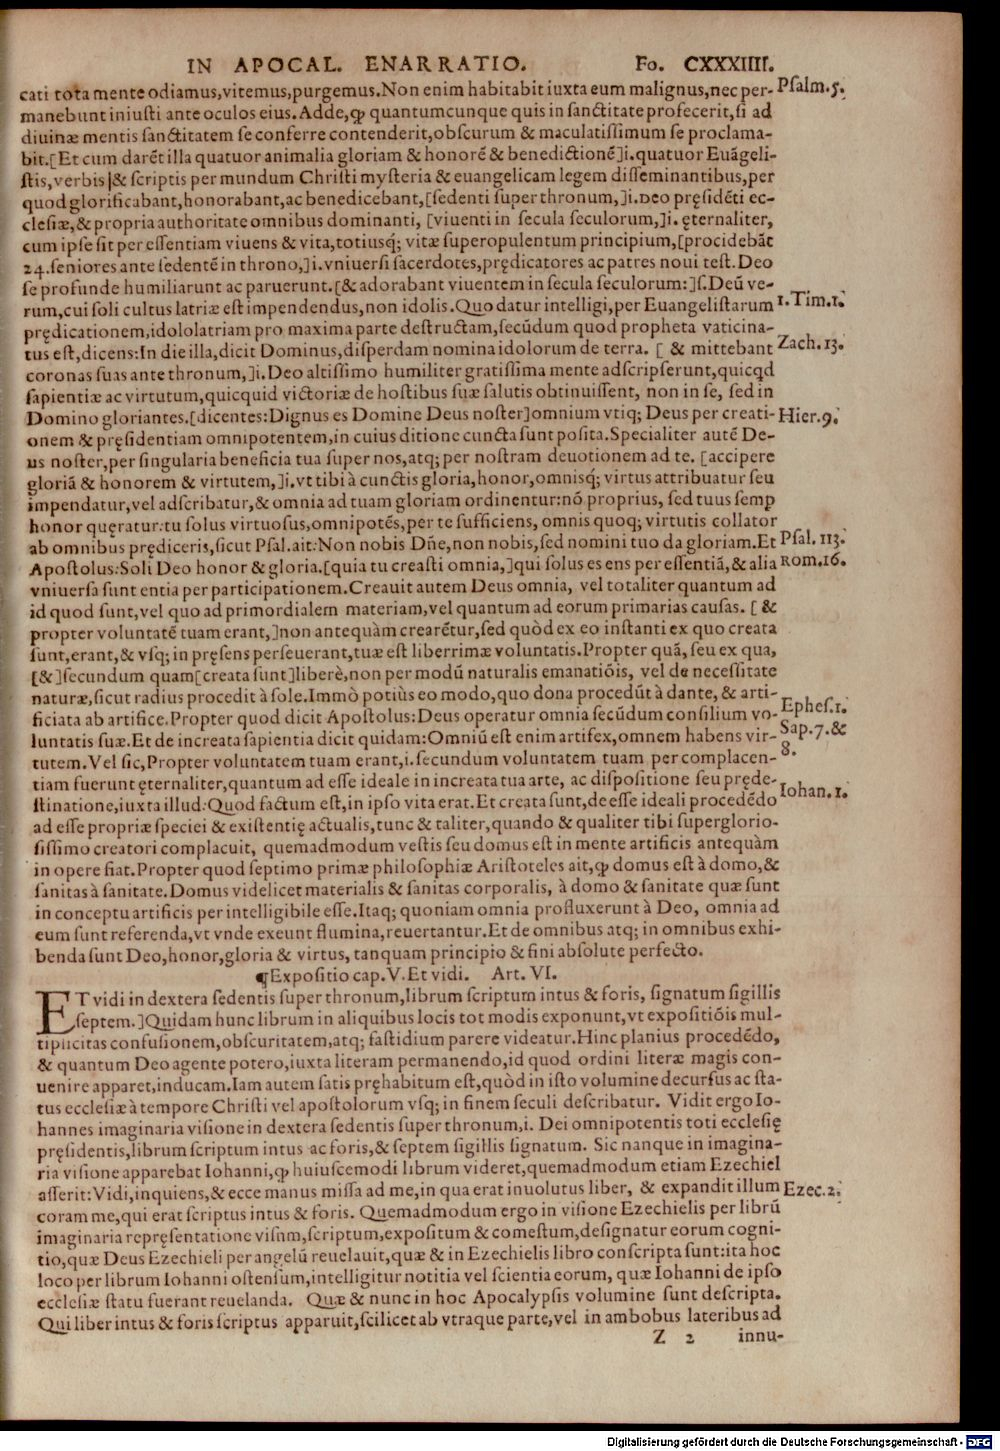 IN APOCAL. ENARRATIO. Fo. CXXXIIII.
cati tota mente odiamus,vitemus,purgemus.Non enim habitabit iuxta eum malignus,nec per- Psalm.5.
manebunt iniusti ante oculos eius.Adde,ꝙ quantumcunque quis in sanctitate profecerit,si ad
diuinæ mentis sanctitatem se conferre contenderit,obscurum & maculatissimum se proclama-
bit.[Et cum darẽt illa quatuor animalia gloriam & honorẽ & benedictionẽ]i.quatuor Euãgeli-
stis,verbis|& scriptis per mundum Christi mysteria & euangelicam legem disseminantibus,per
quod glorificabant,honorabant,ac benedicebant,[sedenti super thronum,]i.DEO pręsidẽti ec-
clesiæ,& propria authoritate omnibus dominanti, [viuenti in secula seculorum,]i.ęternaliter,
cum ipse sit per essentiam viuens & vita,totiusq́; vitæ superopulentum principium,[procidebãt
24.seniores ante sedentẽ in throno,]i.vniuersi sacerdotes,prędicatores ac patres noui test.Deo
se profunde humiliarunt ac paruerunt.[& adorabant viuentem in secula seculorum:]s.Deũ ve-
rum,cui soli cultus latriæ est impendendus,non idolis.Quo datur intelligi,per Euangelistarum 1.Tim.1.
prędicationem,idololatriam pro maxima parte destructam,secũdum quod propheta vaticina-
tus est,dicens:In die illa,dicit Dominus,disperdam nomina idolorum de terra. [ & mittebant Zach.13.
coronas suas ante thronum,]i.Deo altissimo humiliter gratissima mente adscripserunt,quicqd
sapientiæ ac virtutum,quicquid victoriæ de hostibus suæ salutis obtinuissent, non in se, sed in
Domino gloriantes.[dicentes:Dignus es Domine Deus noster]omnium vtiq; Deus per creati- Hier.9.
onem & pręsidentiam omnipotentem,in cuius ditione cuncta sunt posita.Specialiter autẽ De-
us noster,per singularia beneficia tua super nos,atq; per nostram deuotionem ad te. [accipere
gloriã & honorem & virtutem,]i.vt tibi à cunctis gloria,honor,omnisq́; virtus attribuatur seu
impendatur,vel adscribatur,& omnia ad tuam gloriam ordinentur:nõ proprius, sed tuus semp
honor quęratur:tu solus virtuosus,omnipotẽs,per te sufficiens, omnis quoq; virtutis collator
ab omnibus prędiceris,sicut Psal.ait:Non nobis Dñe,non nobis,sed nomini tuo da gloriam.Et Psal.113.
Apostolus:Soli Deo honor & gloria.[quia tu creasti omnia,]qui solus es ens per essentiã,& alia Rom.16.
vniuersa sunt entia per participationem.Creauit autem Deus omnia, vel totaliter quantum ad
id quod sunt,vel quo ad primordialem materiam,vel quantum ad eorum primarias causas. [ &
propter voluntatẽ tuam erant,]non antequàm crearẽtur,sed quòd ex eo instanti ex quo creata
sunt,erant,& vsq; in pręsens perseuerant,tuæ est liberrimæ voluntatis.Propter quã, seu ex qua,
[&]secundum quam[creata sunt]liberè,non per modũ naturalis emanatiõis, vel de necessitate
naturæ,sicut radius procedit à sole.Immò potiùs eo modo,quo dona procedũt à dante, & arti-
ficiata ab artifice.Propter quod dicit Apostolus:Deus operatur omnia secũdum consilium vo- Ephes.1.
luntatis suæ.Et de increata sapientia dicit quidam:Omniũ est enim artifex,omnem habens vir- Sap.7.&
tutem.Vel sic,Propter voluntatem tuam erant,i.secundum voluntatem tuam per complacen- 8.
tiam fuerunt ęternaliter,quantum ad esse ideale in increata tua arte, ac dispositione seu pręde-
stinatione,iuxta illud:Quod factum est,in ipso vita erat.Et creata sunt,de esse ideali procedẽdo Iohan.1.
ad esse propriæ speciei & existentię actualis,tunc & taliter,quando & qualiter tibi superglorio-
sissimo creatori complacuit, quemadmodum vestis seu domus est in mente artificis antequàm
in opere fiat.Propter quod septimo primæ philosophiæ Aristoteles ait,ꝙ domus est à domo,&
sanitas à sanitate.Domus videlicet materialis & sanitas corporalis, à domo & sanitate quæ sunt
in conceptu artificis per intelligibile esse.Itaq; quoniam omnia profluxerunt à Deo, omnia ad
eum sunt referenda,vt vnde exeunt flumina,reuertantur.Et de omnibus atq; in omnibus exhi-
benda sunt Deo,honor,gloria & virtus, tanquam principio & fini absolute perfecto.
¶Expositio cap.V.Et vidi. Art. VI.
ET vidi in dextera sedentis super thronum,librum scriptum intus & foris, signatum sigillis
septem.]Quidam hunc librum in aliquibus locis tot modis exponunt,vt expositiõis mul-
tiplicitas confusionem,obscuritatem,atq; fastidium parere videatur.Hinc planius procedẽdo,
& quantum Deo agente potero,iuxta literam permanendo,id quod ordini literæ magis con-
uenire apparet,inducam.Iam autem satis pręhabitum est,quòd in isto volumine decursus ac sta-
tus ecclesiæ à tempore Christi vel apostolorum vsq; in finem seculi describatur. Vidit ergo Io-
hannes imaginaria visione in dextera sedentis super thronum,i. Dei omnipotentis toti ecclesię
pręsidentis,librum scriptum intus ac foris,& septem sigillis signatum. Sic nanque in imagina-
ria visione apparebat Iohanni,ꝙ huiuscemodi librum videret,quemadmodum etiam Ezechiel
asserit:Vidi,inquiens,& ecce manus missa ad me,in qua erat inuolutus liber, & expandit illum Ezec.2.
coram me,qui erat scriptus intus & foris. Quemadmodum ergo in visione Ezechielis per librũ
imaginaria repręsentatione visum,scriptum,expositum & comestum,designatur eorum cogni-
tio,quæ Deus Ezechieli per angelũ reuelauit,quæ & in Ezechielis libro conscripta sunt:ita hoc
loco per librum Iohanni ostensum,intelligitur notitia vel scientia eorum, quæ Iohanni de ipso
ecclesiæ statu fuerant reuelanda. Quæ & nunc in hoc Apocalypsis volumine sunt descripta.
Qui liber intus & foris scriptus apparuit,scilicet ab vtraque parte,vel in ambobus lateribus ad
Z 2 innu-
Digitalisierung gefördert durch die Deutsche Forschungsgemeinschaft - DFG